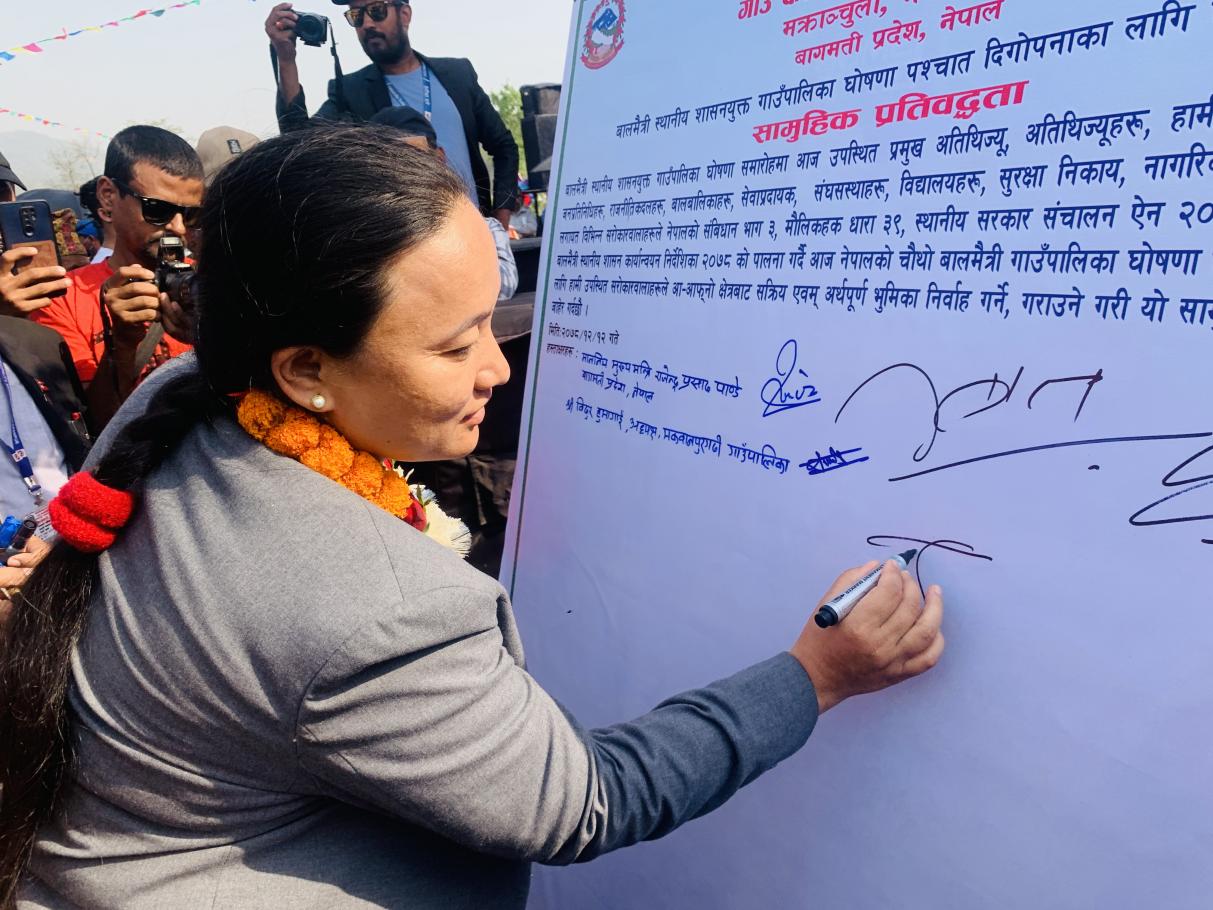 मक्राञ्चुली,
बागमती प्रदेश, नेपाल
बालमैत्री स्थानीय शासनयुक्त गाउँपालिका घोषणा पश्चात दिगोपनाका लागि
सामुहिक प्रतिवद्धता
बालमैत्री स्थानीय शासनयुक्त गाउँपालिका घोषणा समारोहमा आज उपस्थित प्रमुख अतिथिज्यू, अतिथिज्यूहरू, हामी
जनप्रतिनिधिहरू, राजनीतिकदलहरू, बालबालिकाहरू, सेवाप्रदायक, संघसस्थाहरू, विद्यालयहरू, सुरक्षा निकाय,
लगायत विभिन्न सरोकारवालाहरूले नेपालको संबिधान भाग ३, मौलिकहक धारा ३९, स्थानीय सरकार संचालन ऐन २०
बालमैत्री स्थानीय शासन कार्यान्वयन निर्देशिका २०७८ को पालना गर्दै आज नेपालको चौथो बालमैत्री गाउँपालिका घोषणा
लागि हामी उपस्थित सरोकारवालाहरूले आ-आफ्नो क्षेत्रबाट सक्रिय एवम् अर्थपूर्ण भुमिका निर्वाह गर्ने, गराउने गरी यो
जाहेर गर्दछौं ।
मिति:२०७८/१२/१२ गते
हस्ताक्षरहरू : माननिय मुख्य मन्त्रि राजेन्द्र प्रसाद पाण्डे
बागमती प्रदेश, नेपाल
श्री बिदुर हुमागाई, अध्यक्ष, मकवानपुरगढी गाउँपालिका